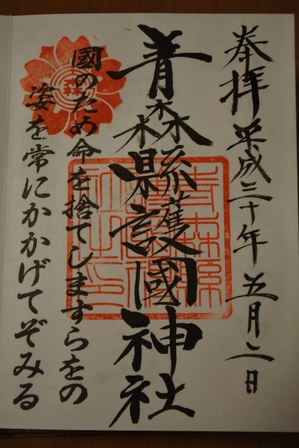 奉拝 平成三十年五月二日
青森縣護國神社
國のため命を捨てしますらをの
姿を常にかかげてぞみる